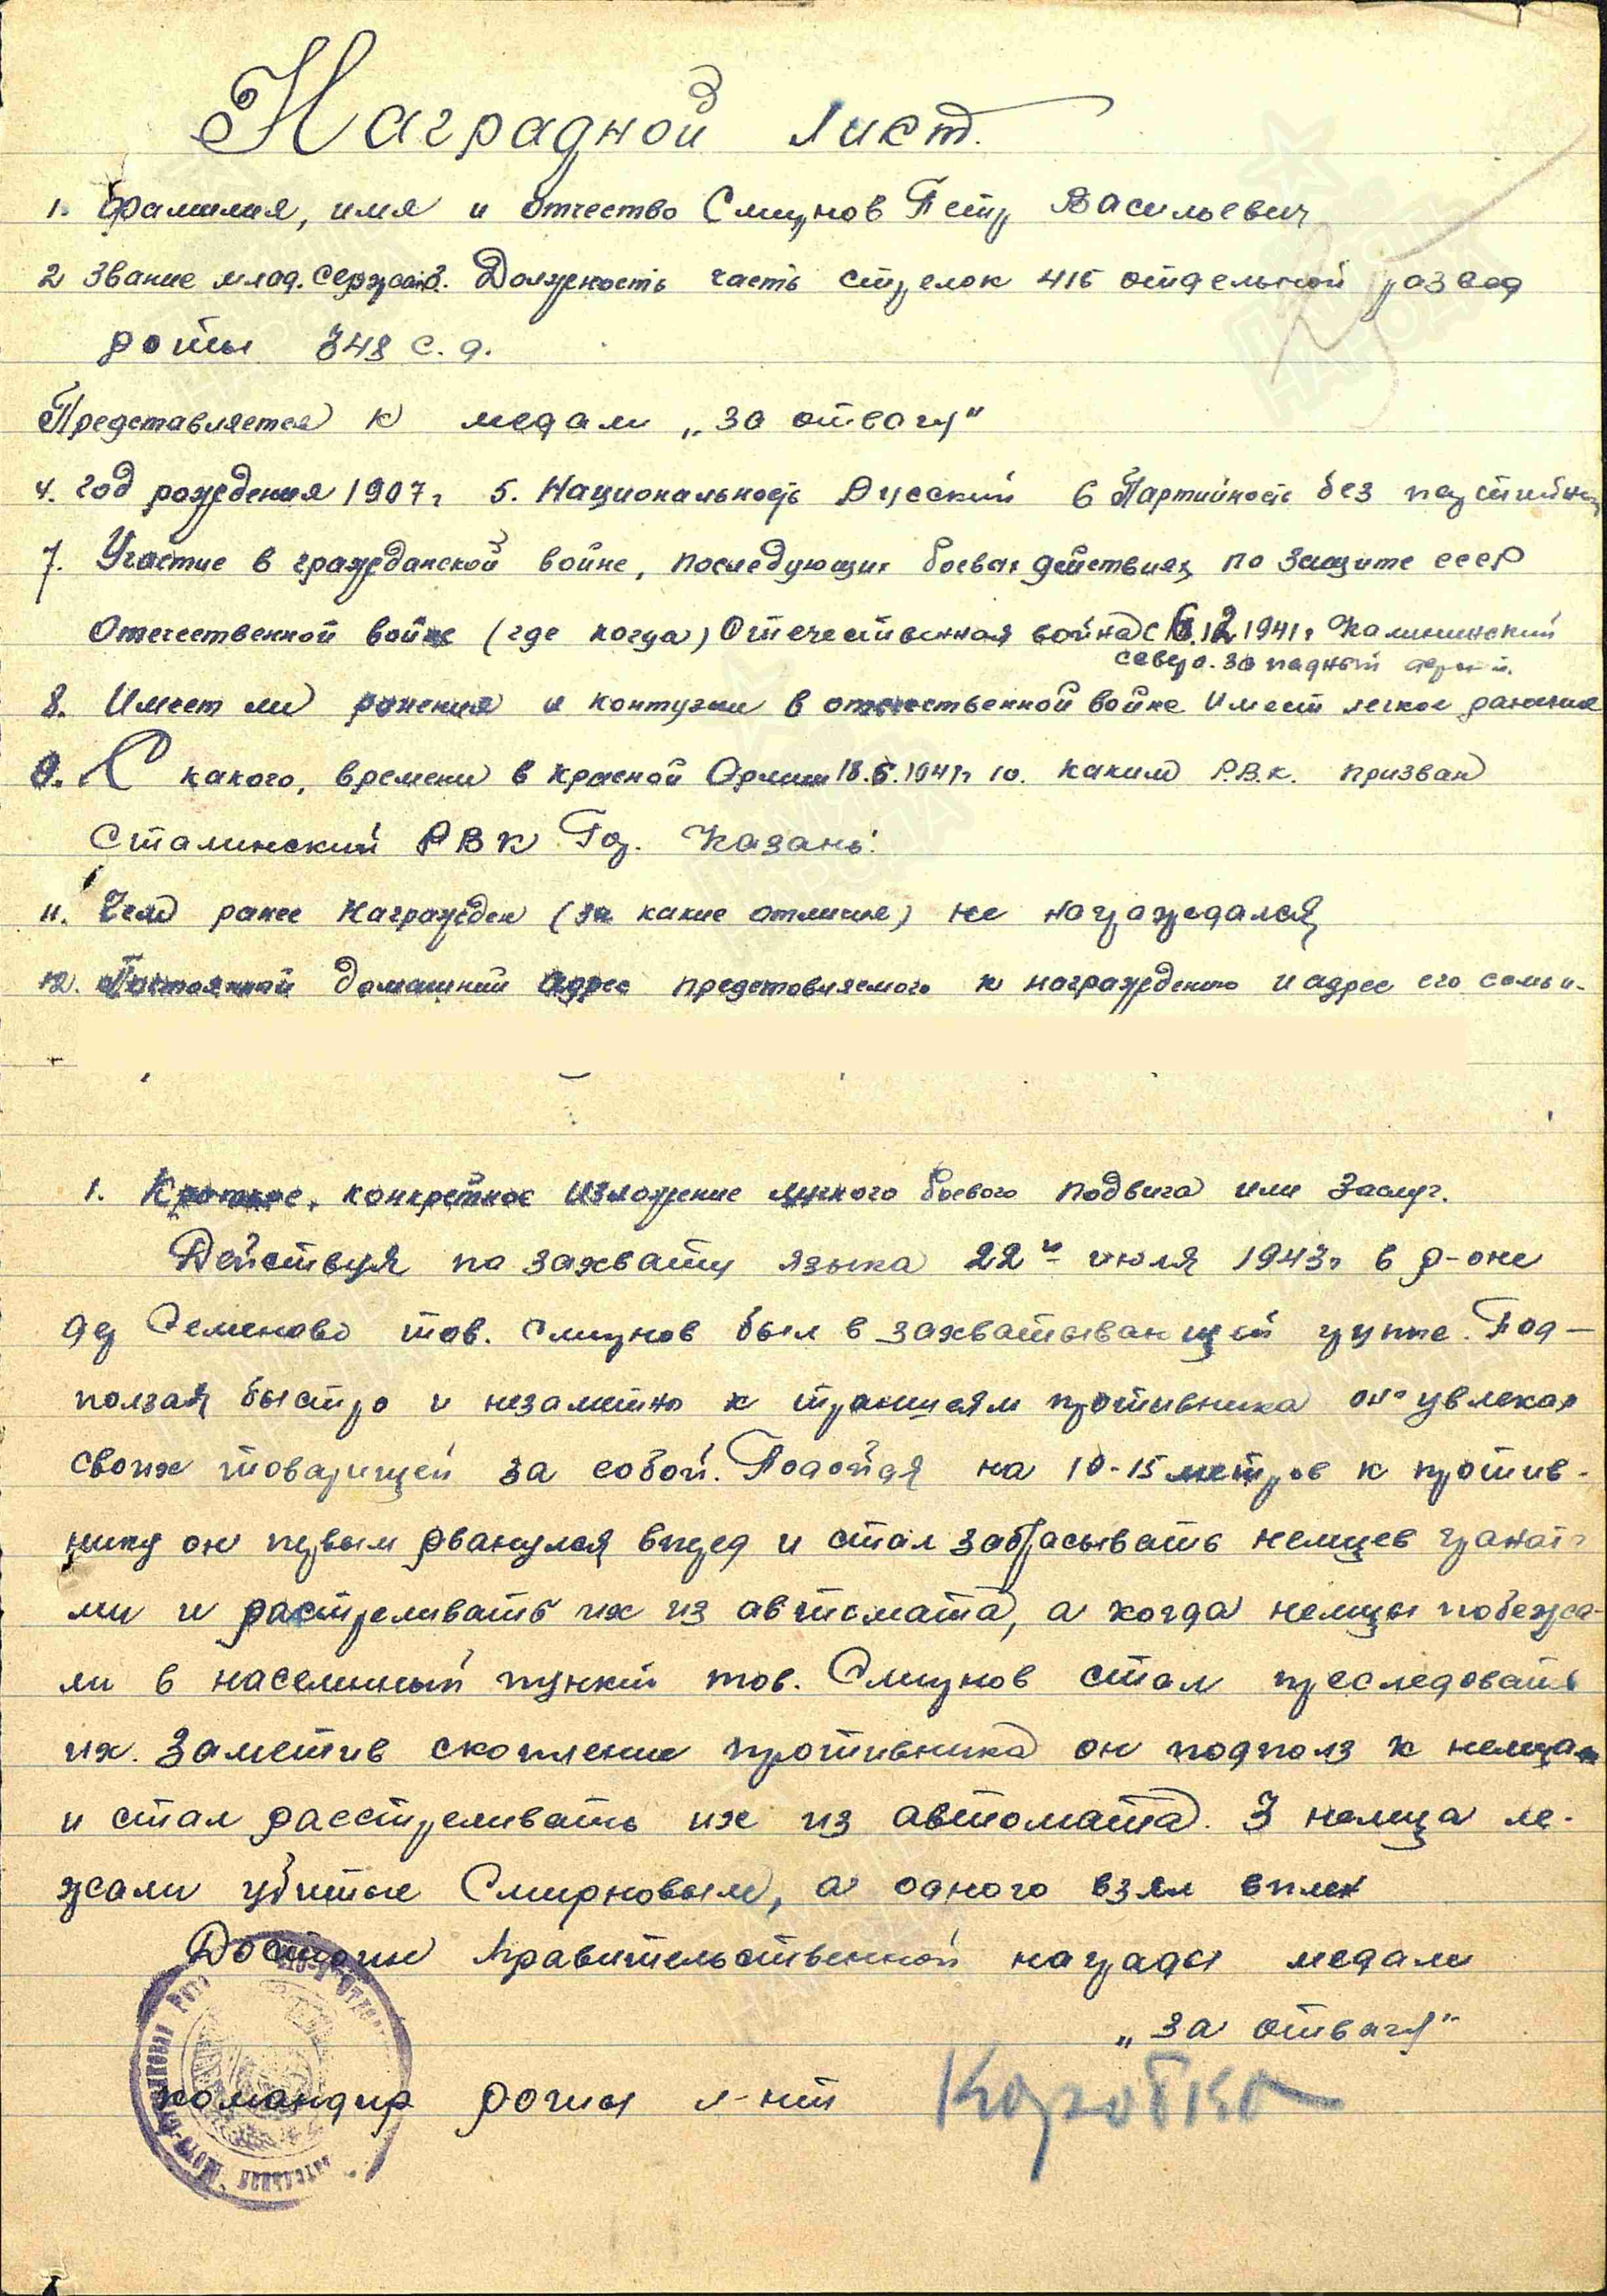 Наградной лист.
1. Фамилия, имя и отчество Смирнов Петр Васильевич
2 Звание млад. сержант. Должность часть стрелок 415 отдельной развед
роты 348 с.д.
Представляется к медали „за отвагу"
4. год рождения 1907г 5. Национальность Русский 6 Партийность без партийный
7. Участие в гражданской войне, последующих боевых действиях по защите СССР
Отечественной войне (где когда) Отечественная война с 6.12.1941г Калининский
северо. западный фронт.
8. Имеет ли ранения и контузии в отечественной войне Имеет легкое ранение
9. С какого, времени в Красной Армии 18.6.1941г 10. каким Р.В.К. призван
Сталинский РВК Гор. Казань.
11. Чем ранее награжден (за какие отличие) не награждался
12. Постоянной домашний адрес представляемого к награждению и адрес его семьи.
1. Краткое, конкретное изложение личного боевого подвига или заслуг.
Действуя по захвату языка 22го июля 1943г в р-оне
дер Семеново тов. Смирнов был в захватывающей группе. Под–
ползая быстро и незаметно к траншеям противника он увлекал
своих товарищей за собой. Подойдя на 10-15 метров к против-
нику он первым рванулся вперед и стал забрасывать немцев граната-
ми и растреливать их из автомата, а когда немцы побежа-
ли в населенный пункт тов. Смирнов стал преследовать
их. Заметив скопление противника он подполз к немцам
и стал расстреливать их из автомата. 3 немца ле-
жали убитые Смирновым, а одного взял в плен
Достоин Правительственной награды медали
„за отвагу"
командир роты л-нт Коробко